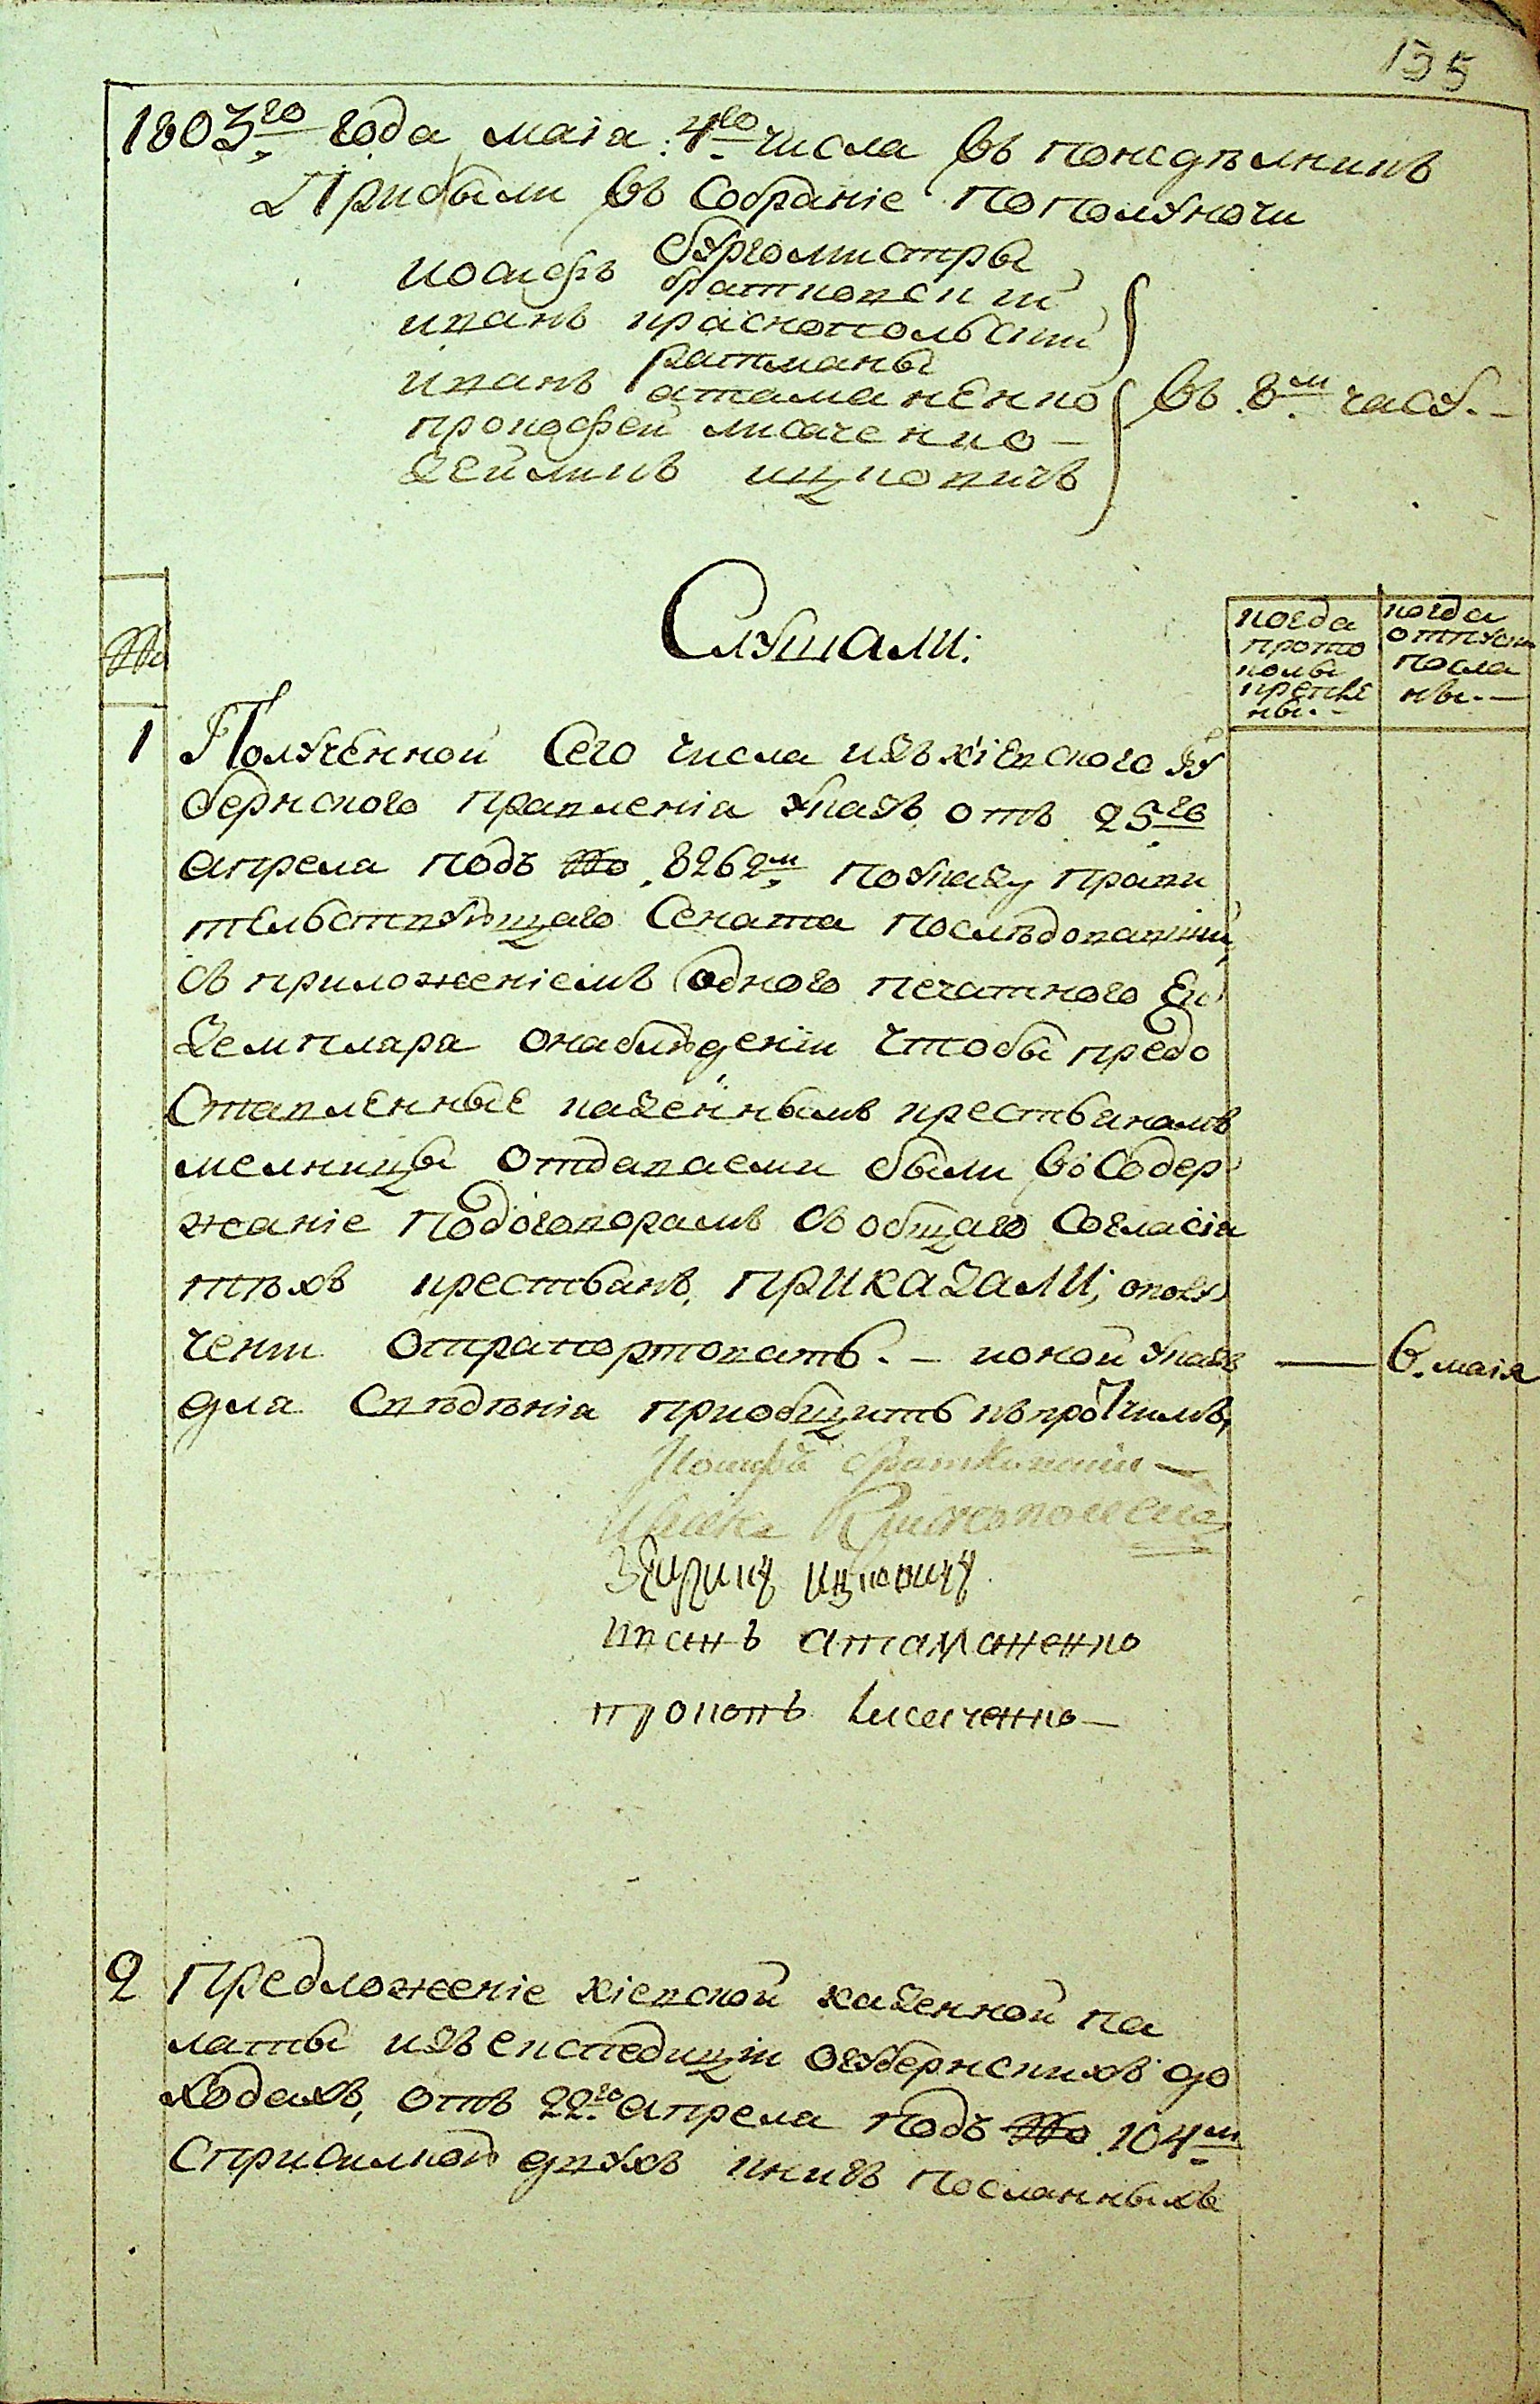 135
1803го года маiа: 4го числа въ понедѣлникъ
Прибыли въ Собранiе пополуночи
бургомистры
иосифъ братковский
иванъ краснопольский
ратманы
иванъ атаманенко
прокофей лисаченко —
зейликъ ицковичъ
въ 8м часу. —
Слушали:
№
когда
прото
колы
крепле
ны. —
когда
отпуски
посла
ны. —
1 Полученной Сего числа изъ кiевского гу
бернского правленiа указъ отъ 25го
апрела подъ № 8262м поуказу прави
тельствующаго Сената последовавший,
съ приложенiемъ одного печатного ек
земплара онаблюденiи чтобы предо
Ставленные казеннымъ крестьянамъ
мелницы отдаваеми были во Содер
жанiе подоговорамъ съ общаго Согласiа
тѣхъ крестьанъ, ПРИКАЗАЛИ; ополу
ченiи отрапортовать. — ионой указъ
6. маiя
для Свѣдѣнiа приобщить къпротчимъ,
Иосифъ братковский —
Иванъ Краснопольский
Зейликъ ицковичъ
иванъ атаманенко
прокопъ лисаченко —
2 Предложенiе кiевской казенной па
латы изъ експедицiи огубернскихъ до
ходахъ, отъ 22го апрела подъ № 104м
Сприсилкой двухъ книгъ посланныхъ